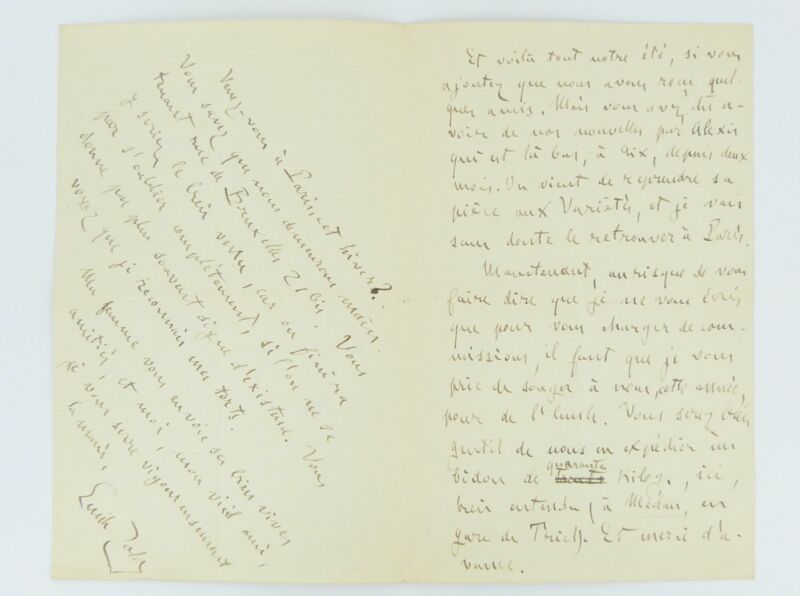 Et voilà tout notre été, si vous
ajoutez que nous avons reçu quel-
ques amis. Mais vous avez dû a-
voir de nos nouvelles par Alexis
qui est là bas, à Aix, depuis deux
mois. On vient de reprendre sa
pièce aux Variétés, et je vais
sans doute le retrouver à Paris.
Maintenant, au risque de vous
faire dire que je ne vous écris
que pour vous charger de com-
missions, il faut que je vous
prie de songer à nous, cette année,
pour de l'huile. Vous serez bien
gentil de nous en expédier un
bidon de quarante kilog., ici,
bien entendu, à Médan, en
gare de Triel. Et merci d'a-
vance.
Venez-vous à Paris, cet hiver ?
Vous savez que nous demeurons mainte-
nant rue de Bruxelles 21 bis. Vous
y seriez le bien venu, car on finira
par s'oublier complètement, si l'on ne se
donne pas plus souvent signe d'existence. Vous
voyez que je reconnais mes torts.
Ma femme vous envoie ses bien vives
amitiés et moi, mon vieil ami,
je vous serre vigoureusement
la main.
Emile Zola